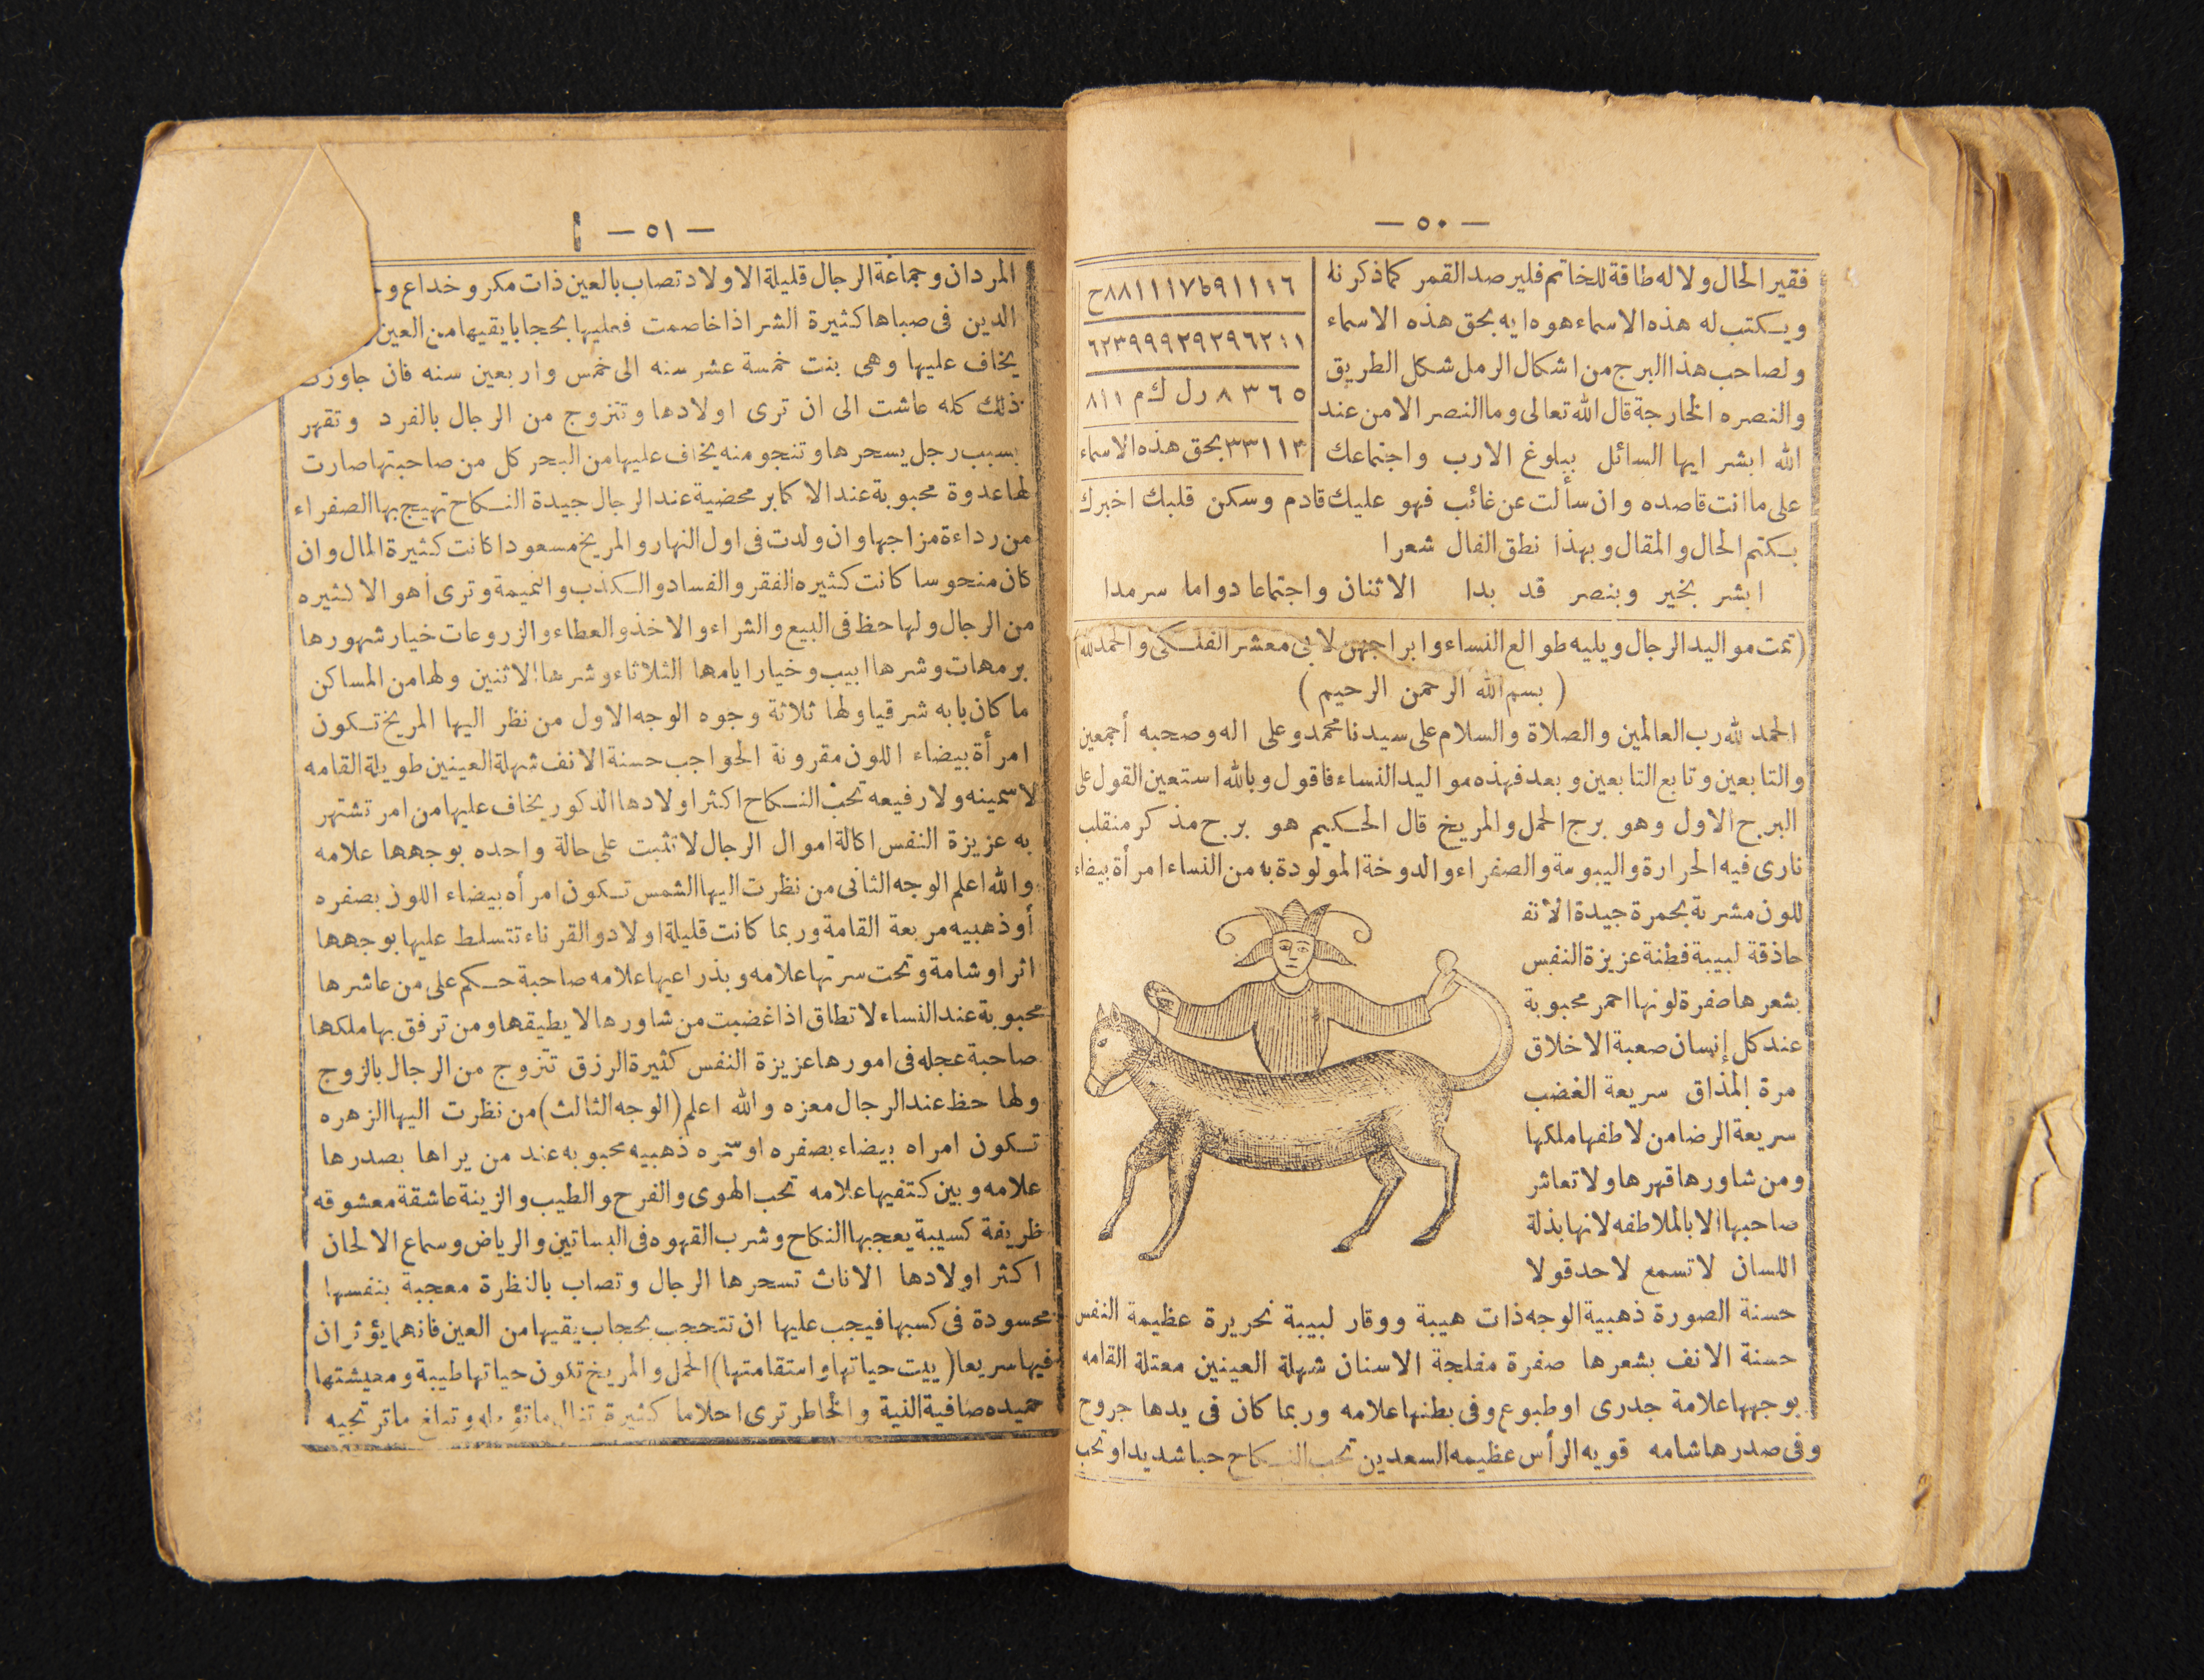 — ٥٠ —
فقير الحال ولا له طاقة للخاتم فلير صد القمر كما ذكرنه
ويكتب له هذه الاسماء هوه ايه بحق هذه الاسماء
ولصاحب هذا البرج من اشكال الرمل شكل الطريق
والنصره الخارجة قال الله تعالى وما النصر الامن عند
الله ابشر ايها السائل ببلوغ الارب واجتماعك
٨٣٦٥ رل ك م ٨١١
٣٣١١٣ بحق هذه الاسماء
على ما انت قاصده وان سألت عن غائب فهو عليك قادم وسكن قلبك اخبرك
بكتم الحال والمقال وبهذا نطق الفال شعرا
ابشر بخير وبنصر قد بدا الاثنان واجتماعا دواما سرمدا
(تمت مواليد الرجال ويليه طوالع النساء وابراجهن لابى معشر الفلكى والحمد لله)
( بسم الله الرحمن الرحيم )
الحمد لله رب العالمين والصلاة والسلام على سيدنا محمد وعلى اله وصحبه أجمعين
والتابعين وتابع التابعين وبعد فهذه مواليد النساء فاقول وبالله استعين القول على
البرج الاول وهو برج الحمل والمريخ قال الحكيم هو برج مذكر منقلب
نارى فيه الحرارة واليبوسة والصفراء والدوخة المولودة به من النساء امرأة بيضاء
للون مشربة بحمرة جيدة الانف
حاذقة لبيبة فطنة عزيزة النفس
بشعرها صفرة لونها احمر محبوبة
عند كل إنسان صعبة الاخلاق
مرة المذاق سريعة الغضب
سريعة الرضا من لاطفها ملكها
ومن شاورها قهرها ولا تعاشر
صاحبها الا بالملاطفه لانها بذلة
اللسان لا تسمع لاحد قولا
حسنة الصورة ذهبية الوجه ذات هيبة ووقار لبيبة نحريرة عظيمة النفس
حسنة الانف بشعرها صفرة مفلجة الاسنان شهلة العينين معتلة القامه
بوجهها علامة جدرى او طبوع وفى بطنها علامه وربما كان فى يدها جروح
وفى صدرها شامه قويه الرأس عظيمه السعدين تحب النكاح حبا شديدا وتحب
— ٥١ —
المردان وجماعة الرجال قليلة الاولاد تصاب بالعين ذات مكر وخداع
الدين فى صباها كثيرة الشر اذا خاصمت فعليها بحجاب يقيها من العين
يخاف عليها وهى بنت خمسة عشر سنه الى خمس واربعين سنه فان جاوزت
ذلك كله عاشت الى ان ترى اولادها وتتزوج من الرجال بالفرد وتقهر
بسبب رجل يسحرها وتنجو منه يخاف عليها من البحر كل من صاحبتها صارت
لها عدوة محبوبة عند الاكابر محضية عند الرجال جيدة النكاح تهيج بها الصفراء
من رداءة مزاجها وان ولدت فى اول النهار والمريخ مسعودا كانت كثيرة المال وان
كان منحوسا كانت كثيره الفقر والفساد والكذب والنميمة وترى أهوالا كثيره
من الرجال ولها حظ فى البيع والشراء والاخذ والعطاء والزروعات خيار شهورها
برمهات وشرها ابيب وخيار ايامها الثلاثاء وشرها الاثنين ولها من المساكن
ما كان بابه شرقيا ولها ثلاثة وجوه الوجه الاول من نظر اليها المريخ تكون
امرأة بيضاء اللون مقرونة الحواجب حسنة الانف شهلة العينين طويلة القامه
لا سمينه ولا رفيعه تحب النكاح اكثر اولادها الذكور يخاف عليها من امر تشتهر
به عزيزة النفس اكالة اموال الرجال لا تثبت على حالة واحده بوجهها علامه
والله اعلم الوجه الثانى من نظرت اليها الشمس تكون امرأه بيضاء اللون بصفره
أو ذهبيه مربعة القامة وربما كانت قليلة اولاد والقرناء تتسلط عليها بوجهها
اثر او شامة وتحت سرتها علامه وبذراعيها علامه صاحبة حكم على من عاشرها
محبوبة عند النساء لا تطاق اذا غضبت من شاورها لا يطيقها ومن ترفق بها ملكها
صاحبة عجله فى امورها عزيزة النفس كثيرة الرزق تتزوج من الرجال بالزوج
ولها حظ عند الرجال معزه والله اعلم (الوجه الثالث) من نظرت اليها الزهره
تكون امراه بيضاء بصفره او سمره ذهبيه محبوبه عند من يراها بصدرها
علامه وبين كتفيها علامه تحب الهوى والفرح والطيب والزينة عاشقة معشوقه
ظريفة كسيبة يعجبها النكاح وشرب القهوه فى البساتين والرياض وسماع الالحان
اكثر اولادها الاناث تسحرها الرجال وتصاب بالنظرة معجبة بنفسها
محسودة فى كسبها فيجب عليها ان تتحجب بحجاب يقيها من العين فانهما يؤثران
فيها سريعا (بيت حياتها واستقامتها) الحمل والمريخ تكون حياتها طيبة ومعيشتها
حميده صافية النية والخاطر ترى احلاما كثيرة تنال ما تؤمله وتبلغ ما ترتجيه